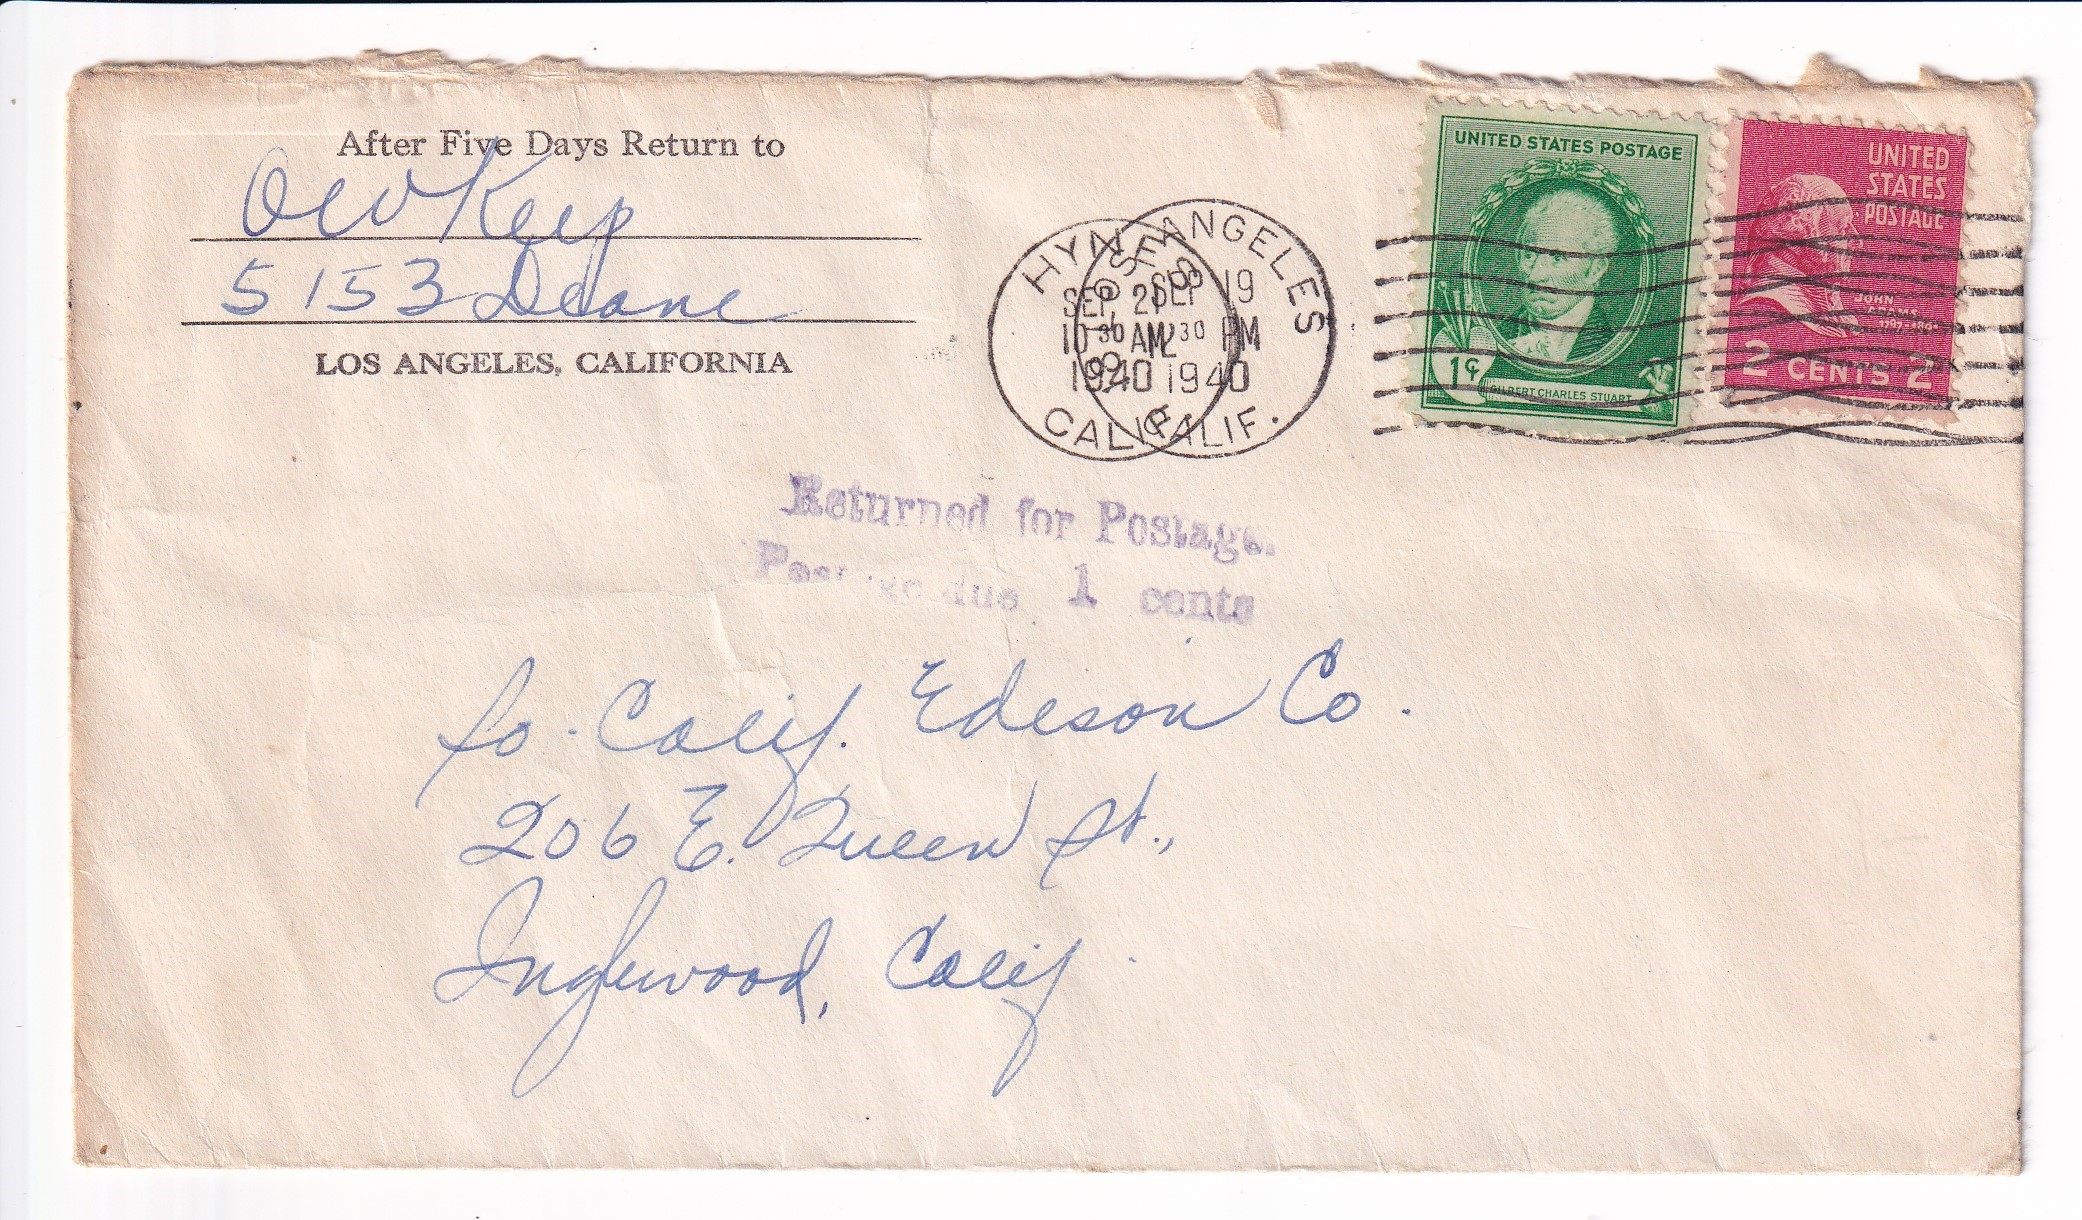 After Five Days Return to
OW Keep
5153 Deane
LOS ANGELES, CALIFORNIA
HYNES
SEP 21
10 30 AM
1940
CALIF.
LOS ANGELES
SEP 19
2 30 PM
1940
CALIF.
UNITED STATES POSTAGE
1¢
GILBERT CHARLES STUART
UNITED
STATES
POSTAGE
JOHN
ADAMS
2 CENTS 2
Returned for Postage.
Postage due 1 cents
So. Calif. Edeson Co.
206 E. Queen St.,
Inglewood, Calif.